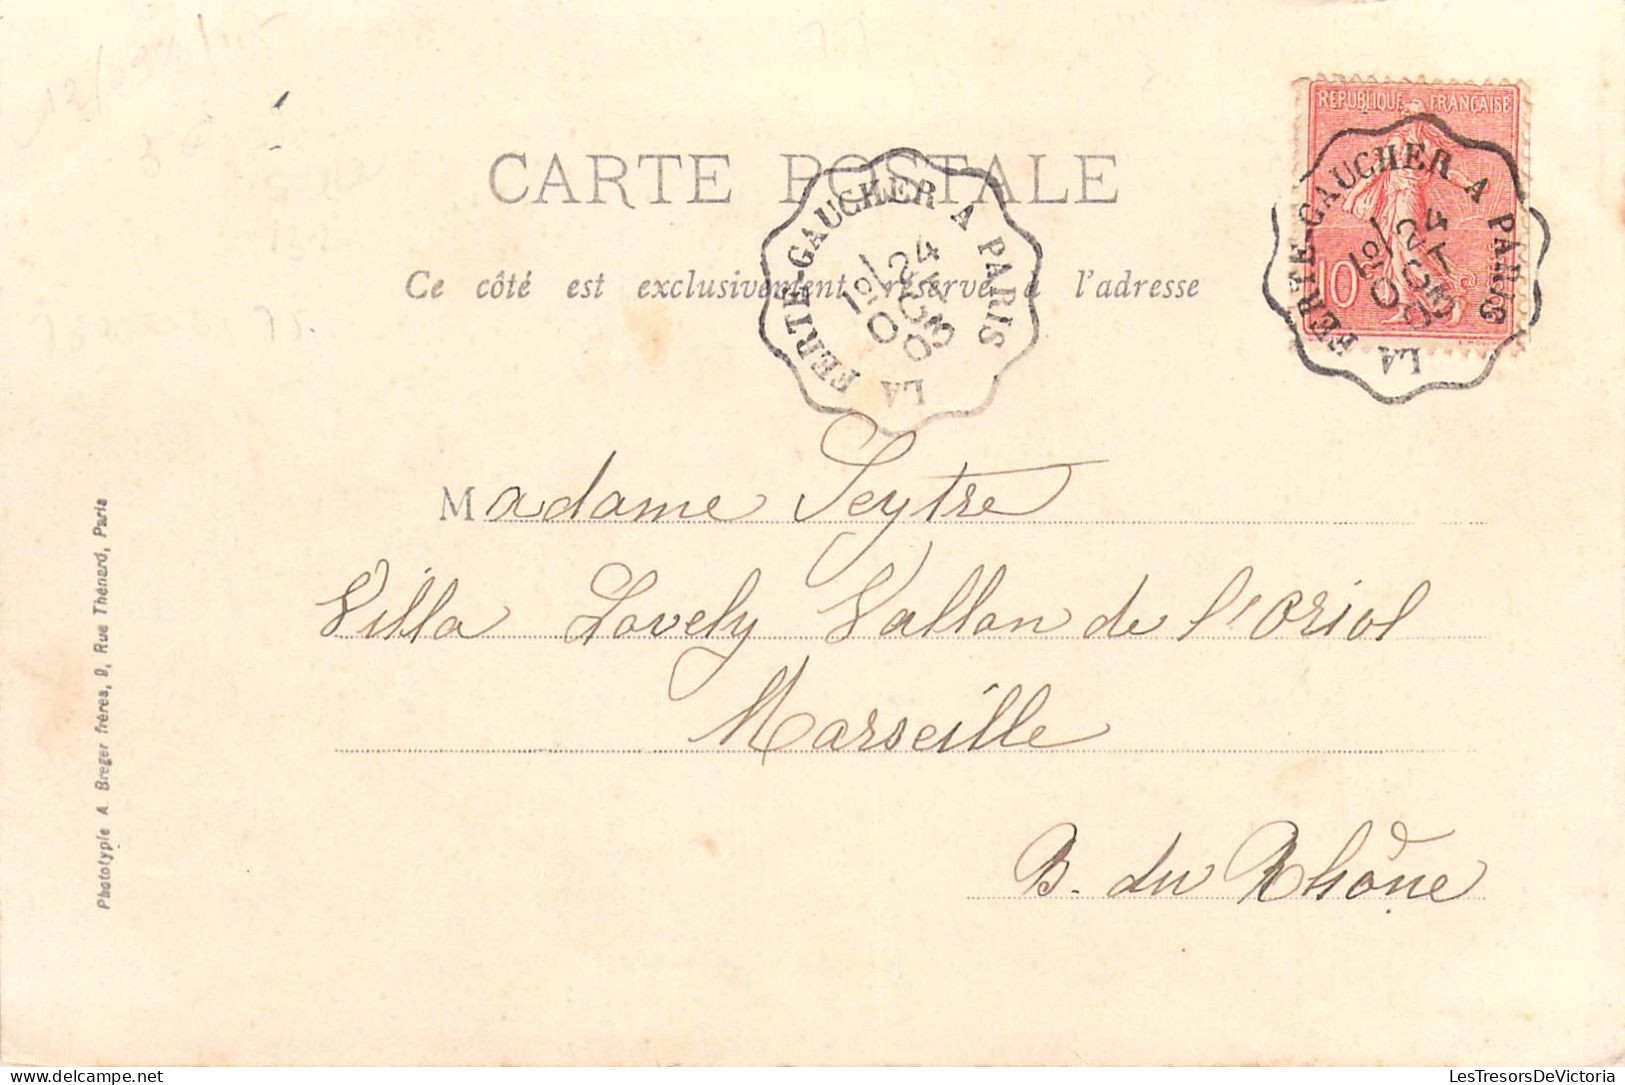 REPUBLIQUE FRANÇAISE
10
LA FERTE-GAUCHER A PARIS
24
OCT
03
CARTE POSTALE
LA FERTE-GAUCHER A PARIS
24
OCT
03
Ce côté est exclusivement réservé à l'adresse
Madame Seytre
Villa Lovely Vallon de l'Oriol
Marseille
B. du Rhône
Phototypie A Breger frères, 9, Rue Thénard, Paris
LesTresorsDeVictoria